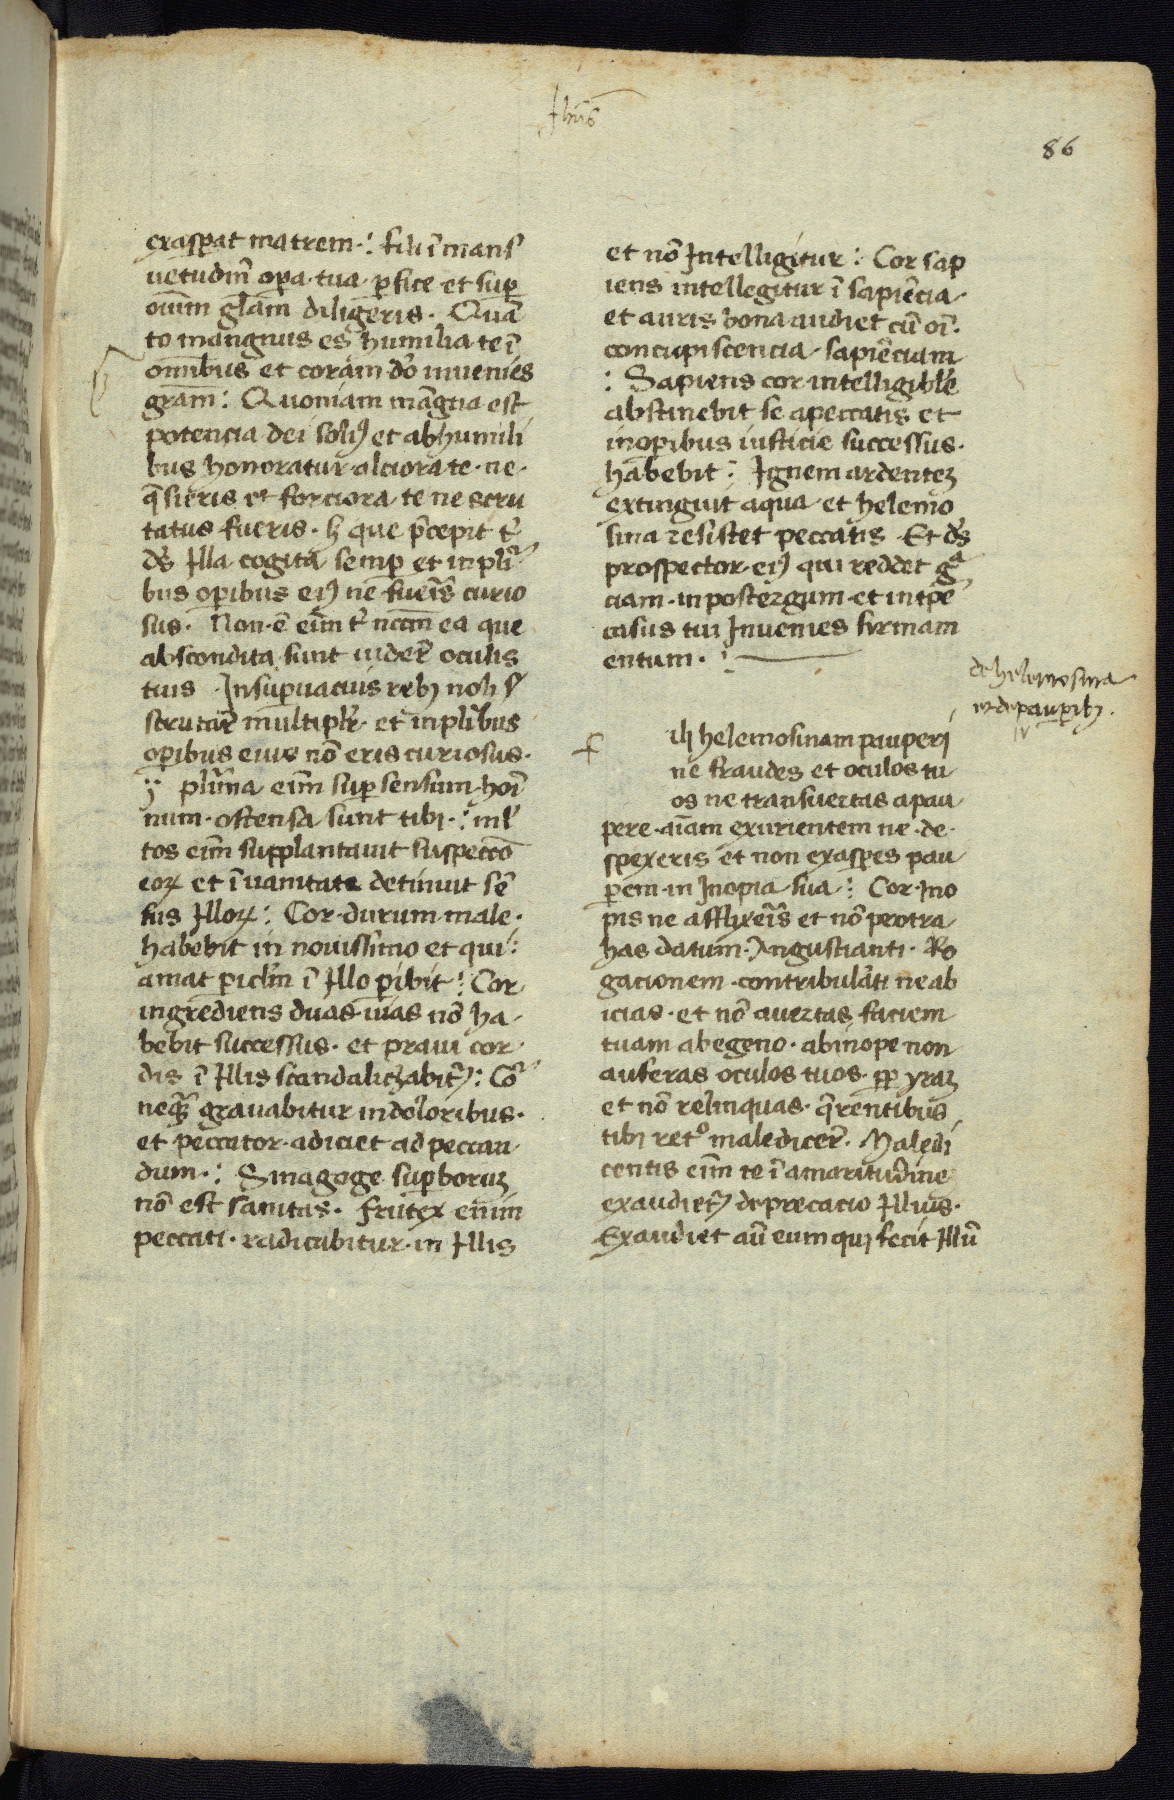 Jhus
86
exasperat matrem · : fili ī mans
uetudīe oꝑa · tua · ꝑfice et suꝑ
oīum glām diligeris · Quā
to mangnus es humilia te ī
omībus et coram dō inuenies
gram : Quoniam māgna est
potencia dei solꝰ et ab humili
bus honoratur · alciora te · ne ·
q̄sieris et forciora · te ne scru
tatus fueris · h̄ que p̄cepit t
ds Illa cogita semꝑ et in plī
bus oꝑibus eiꝰ ne fueris curio
sus · Non · ē eīm t nccm̄ ea que
abscondita sunt uider̄ oculis
tuis · In suꝑuacuis rebꝫ noli
scrutari multiplr · et in plībus
oꝑibus eius nō eris curiosus ·
plīma eīm suꝑ sensum hoī
num · ostensa sunt tibi · : ml
tos eīm supplantauit suspeccō
eoꝝ et ī uanitate detinuit sē
sus Illoꝝ : Cor · durum male ·
habebit in nouissimo et qui :
amat ꝑiclm̄ ī Illo ꝑibit : Cor
ingrediens duas uias nō ha ·
bebit successus · et praui cor ·
dis ī Illis scandalichabitꝰ : Cō
neqꝫ grauabitur in doloribus ·
et peccator · adiciet ad peccan
dum · : Sinagoge suꝑborum
nō est sanitas · frutex enim
peccati · radicabitur · in Illis
et nō Intelligitur : Cor sap
iens intellegitur ī sapiēcia ·
et auris bona audiet cū oī ·
concupiscencia · sapiēciam
: Sapiens cor intelligible
abstinebit se a peccatis et
in opibus iusticie successus ·
habebit : Ignem ardentem
extinguit aqua et helemo
sina resistet peccatis Et ds
prospector eiꝰ qui reddet gᵃ
ciam · in postergum · et in tpe
casus tui Inuenies firmam
entum · :
de helemosina
et de pauꝑibꝫ ·
IV
f
ilj helemosinam pauperi
ne fraudes et oculos tu
os ne transuertas a pau
pere · aīam exurientem ne · de ·
spexeris et non exasꝑes pau
ꝑem · in Inopia sua : Cor · Ino
pis ne afflixeris et nō protra
has datum · Angustianti · Ro
gacionem · contribulāti ne ab
icias · et nō auertas faciem
tuam ab egeno · ab inope non
auferas oculos tuos · ꝓꝑ yram
et nō relinquas · q̄rentibus
tibi retº maledicer̄ · Maledi
centis eīm te ī amaritudine
exaudietꝰ deprecacio Illius ·
Exaudiet aū eum qui fecit Illū